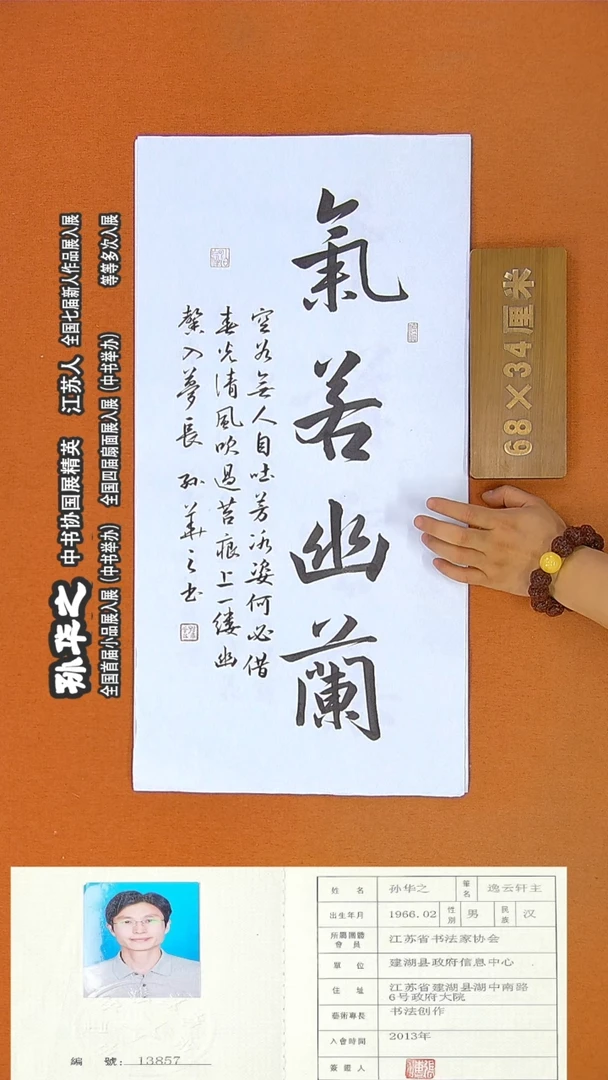 氣若幽蘭
空谷無人自吐芳汝姿何必借
春光清風吹過苔痕上一縷幽
馨入夢長 孙華之书
68×34厘米
孙华之 中书协国展精英 江苏人 全国七届新人作品展入展
全国首届小品展入展（中书举办） 全国四届扇面展入展（中书举办） 等等多次入展
編 號：13857
姓 名 孙华之 筆名 逸云轩主
出生年月 1966.02 性別 男 民族 汉
所屬團體會員 江苏省书法家协会
單 位 建湖县政府信息中心
住 址 江苏省建湖县湖中南路
6号政府大院
藝術專長 书法创作
入會時間 2013年
簽證人